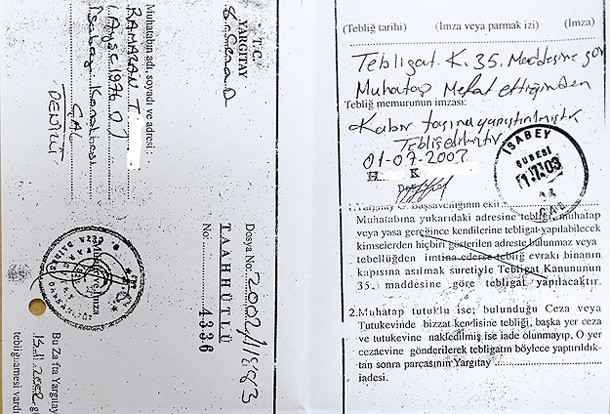 T.C.
YARGITAY
Muhatabın adı, soyadı ve adresi :
RAMAZAN T
İsabey Kasabası
ÇAL
DENİZLİ
Dosya No: 2002/118183
TAAHHÜTLÜ
No: 4336
Bu Zarfta Yargıtay
tebliğnamesi vardı
(Tebliğ tarihi) (İmza veya parmak izi) (İmza)
Tebligat. K. 35. Maddesine göre
Muhatap Vefat ettiğinden
Tebliğ memurunun imzası:
Kabir taşına yapıştırılmıştır
Tebliğ edilmiştir
01-07-2003
H K
İSABEY
ŞUBESİ
1.Yargıtay C. Başsavcılığının ekli
Muhatabına yukarıdaki adresine tebliği, muhatap
veya yasa gereğince kendilerine tebligat yapılabilecek
kimselerden hiçbiri gösterilen adreste bulunmaz veya
tebellüğden imtina ederse tebliğ evrakı binanın
kapısına asılmak suretiyle Tebligat Kanununun
35. maddesine göre tebligat yapılacaktır.
2.Muhatap tutuklu ise; bulunduğu Ceza veya
Tutukevinde bizzat kendisine tebliği, başka yer ceza
ve tutukevine nakledilmiş ise iade olunmayıp, O yer
cezaevine gönderilerek tebligatın böylece yaptırıldık-
tan sonra parçasının Yargıtay
iadesi.